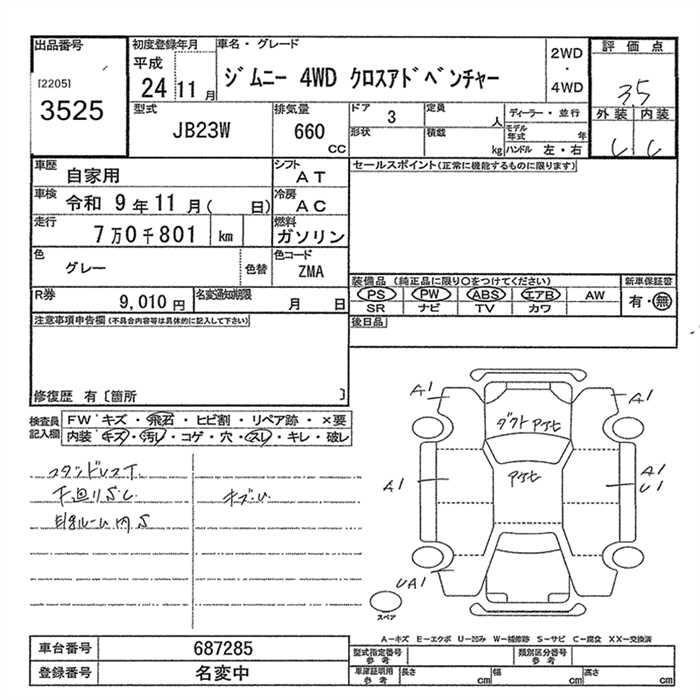 出品番号
[2205]
3525
初度登録年月
平成
24 11 月
車名・グレード
ジムニー 4WD クロスアドベンチャー
2WD
・
4WD
評価点
3.5
外装 内装
C C
型式
JB23W
排気量
660
CC
ドア
3
定員
人
ディーラー・並行
形状
積載
kg
モデル年式 年
ハンドル 左・右
車歴
自家用
シフト
AT
セールスポイント(正常に機能するものに限ります)
車検
令和 9年 11月( 日)
冷房
AC
走行
7万0千801 km
燃料
ガソリン
色
グレー
色替
色コード
ZMA
R券
9,010 円
名変通知期限
月 日
装備品 (純正品に限り○をつけてください)
PS PW ABS エアB AW
SR ナビ TV カワ
新車保証書
有・無
後日品
注意事項申告欄(不具合内容等は具体的に記入して下さい)
修復歴 有〔箇所 〕
検査員記入欄
FW キズ・飛石・ヒビ割・リペア跡・×要
内装 キズ・汚レ・コゲ・穴・スレ・キレ・破レ
下回りS.C
キズU
内 S
A1
A1
ダクト
A1
A1
U1
UA1
スペア
A-キズ E-エクボ U-凹み W-補修跡 S-サビ C-腐食 XX-交換済
車台番号
687285
登録番号
名変中
型式指定番号
参考
類別区分番号
参考
車庫証明用
参考
長さ cm
幅 cm
高さ cm